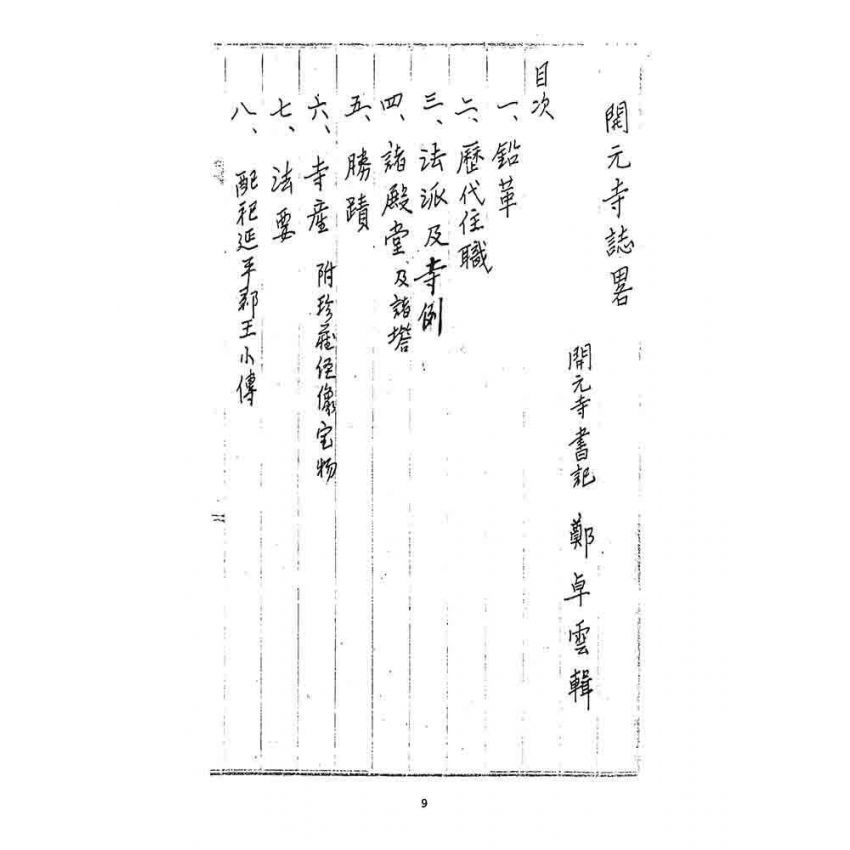 開元寺誌畧
開元寺書記 鄭卓雲輯
目次
一、鉛革
二、歷代住職
三、法派及寺例
四、諸殿堂及諸塔
五、勝蹟
六、寺產 附珍藏經像宝物
七、法要
八、配祀延平郡王小傳
9